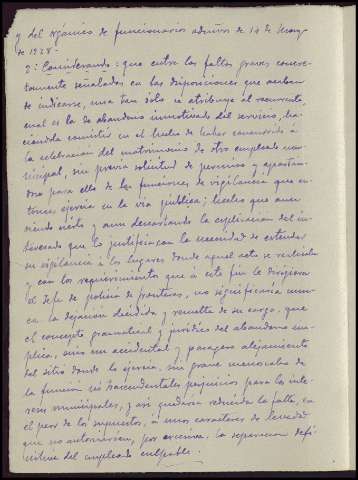 y del orgánico de funcionarios admvos de 14 de Mayo
de 1928.-
2º Considerando: que entre las faltas graves concre-
tamente señaladas en las disposiciones que acaban
de indicarse, una tan sólo se atribuye al recurrente,
cual es la de abandono inmotivado del servicio, ha-
ciéndola consistir en el hecho de haber concurrido á
la celebración del matrimonio de otro empleado mu-
nicipal, sin previa solicitud de permiso y apartán-
dose para ello de las funciones de vigilancia que en-
tonces ejercía en la vía pública; hecho que aun
siendo cierto y aun descartando la explicación del in-
teresado que lo justifica con la necesidad de extender
su vigilancia á los lugares donde aquel acto se realizaba
y con los requerimientos que á este fin le dirigiera
el Jefe de policía de fronteras, no significaría nun-
ca la dejación decidida y resuelta de su cargo, que
el concepto gramatical y jurídico del abandono im-
plica, sino un accidental y pasajero alejamiento
del sitio donde lo ejercía, sin grave menoscabo de
la función ni trascendentales perjuicios para los inte-
reses municipales, y así quedaría reducida la falta, en
el peor de los supuestos, á unos caracteres de levedad
que no autorizarían, por excesiva, la separación defi-
nitiva del empleado culpable.